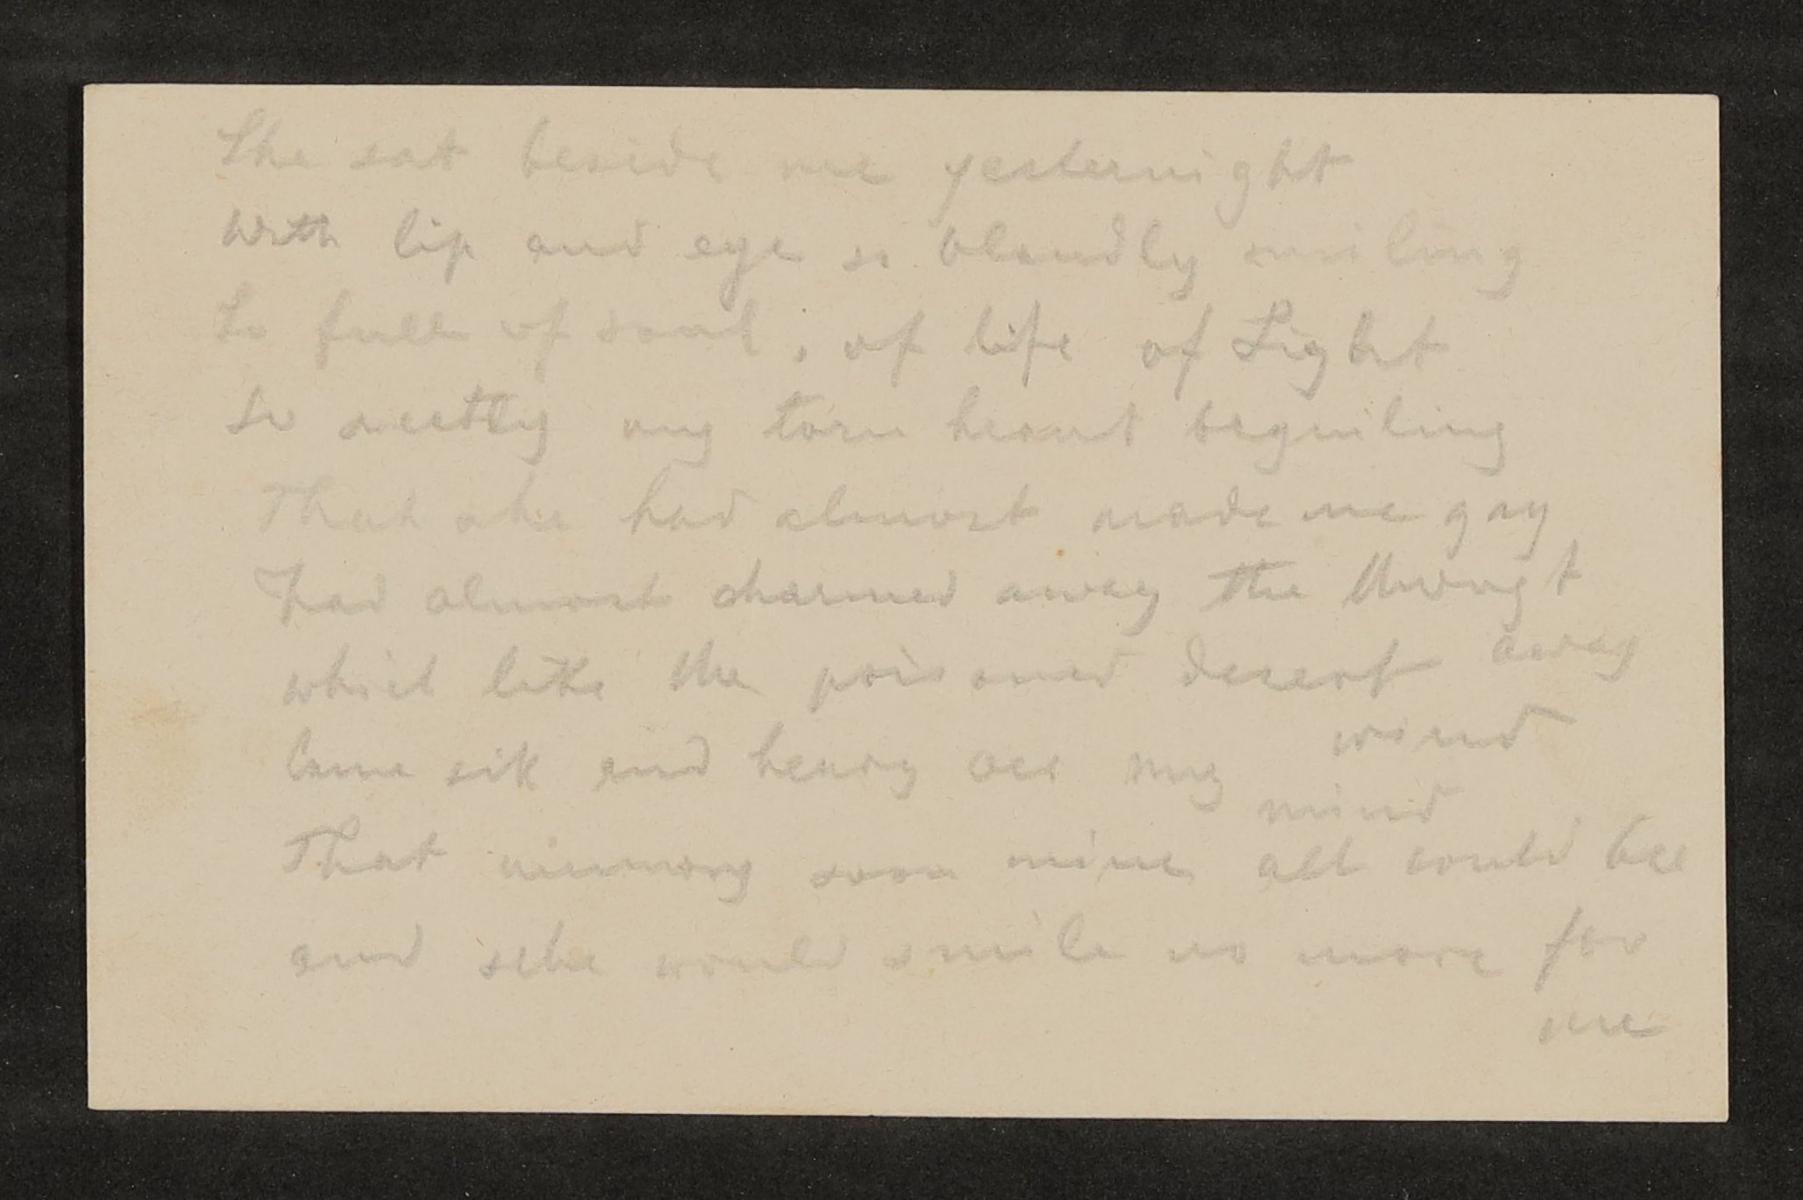 She sat beside me yesternight
With lip and eye so blandly smiling
So full of soul, of life of Light
So seetly my torn heart beguiling
That she had almost made me gay
Had almost charmed away the thougt
which like the poisoned desert away
wind
Came sik and heavy oer my
mind
That memory soon mine all would be
and sehe would smile no more for
me